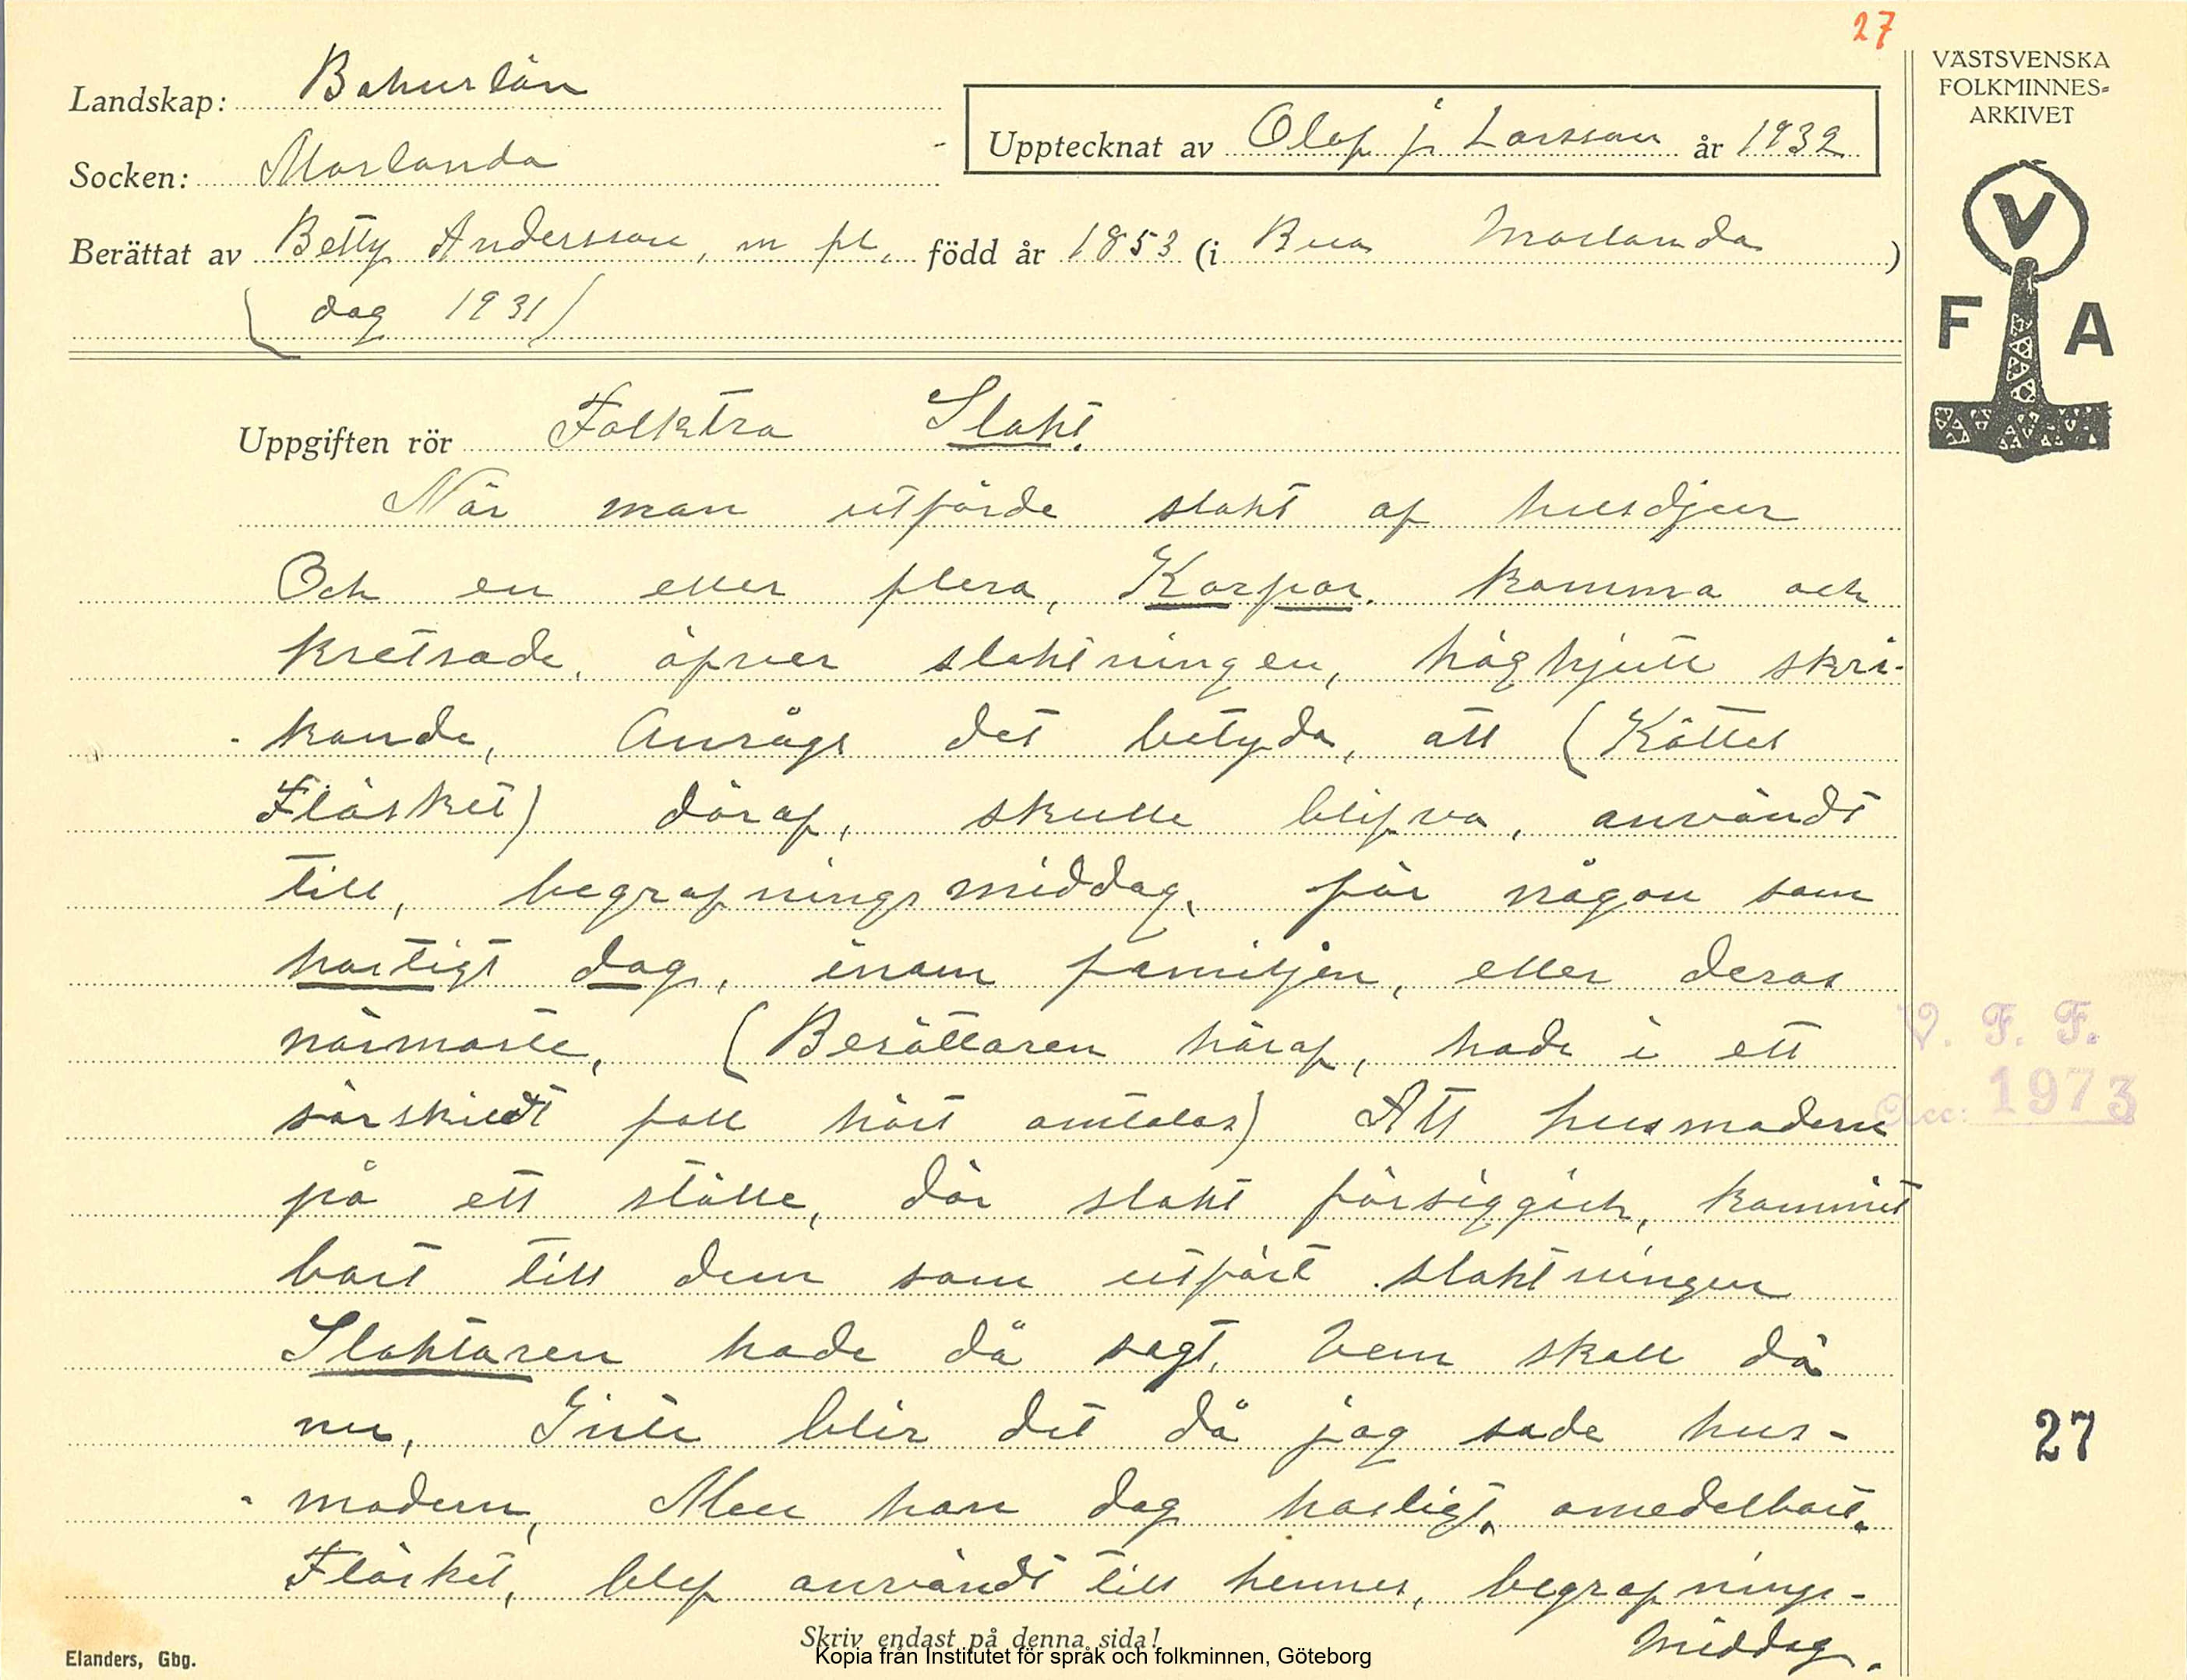 27
VÄSTSVENSKA
FOLKMINNES-
ARKIVET
V
F A
Landskap: Bohuslän
Socken: Morlanda
Upptecknat av Olof j. Larsson år 1932
Berättat av Betty Andersson, m fl. född år 1853 (i Bua Morlanda)
( dog 1931)
Uppgiften rör Folktro Slakt.
När man utförde slakt af husdjur
Och en eller flera, Korpar. komma och
kretsade, öfver slaktningen, höghjutt skri-
-kande, Ansågs det betyda, att (Köttet
Fläsket) däraf, skulle blifva, användt
till, begrafningsmiddag, för någon som
hastigt dog, inom familjen, eller deras
närmaste, (Berättaren häraf, hade i ett
särskildt fall hört omtalas) Att husmodern
på ett ställe, där slakt försiggick, kommit
bort till dem som utfört slaktningen
Slaktaren hade då sagt, Vem skall dö
nu, Inte blir det då jag sade hus-
-modern, Men hon dog hastigt, omedelbart.
Fläsket, blef användt till hennes, begrafnings-
Middag.
V. F. F.
Acc: 1973
27
Skriv endast på denna sida!
Elanders, Gbg.
Kopia från Institutet för språk och folkminnen, Göteborg